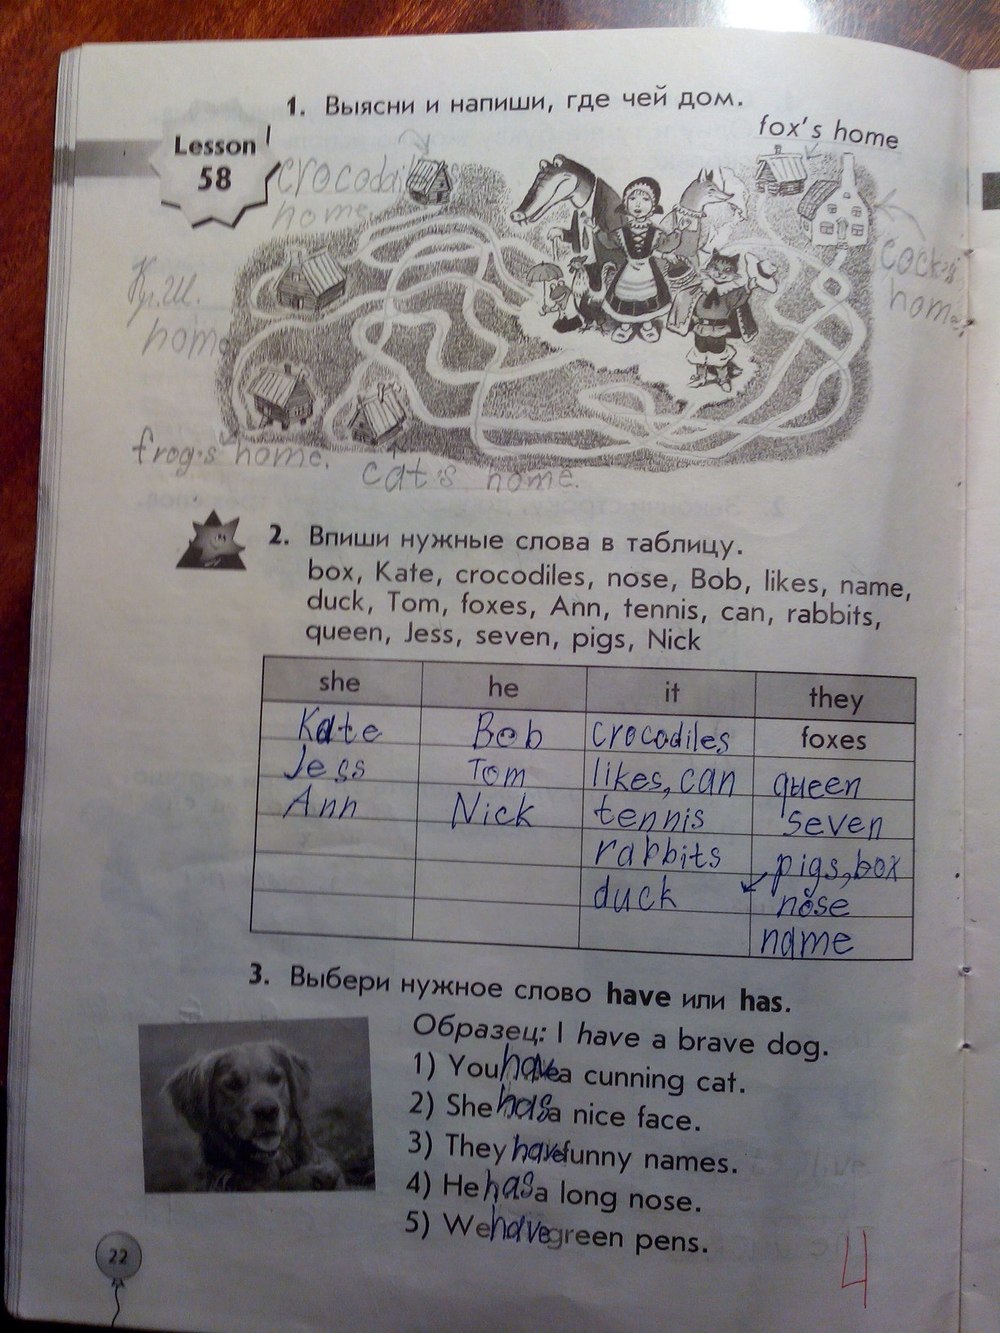 1. Выясни и напиши, где чей дом.
Lesson
58
fox's home
home
Кр.Ш.
home
cock's
home.
frog's home.
cat's home.
2. Впиши нужные слова в таблицу.
box, Kate, crocodiles, nose, Bob, likes, name,
duck, Tom, foxes, Ann, tennis, can, rabbits,
queen, Jess, seven, pigs, Nick
she he it they
Kate Bob crocodiles foxes
Jess Tom likes, can queen
Ann Nick tennis seven
rabbits pigs, box
duck nose
name
3. Выбери нужное слово have или has.
Образец: I have a brave dog.
1) You have a cunning cat.
2) She has a nice face.
3) They have funny names.
4) He has a long nose.
5) We have green pens.
22
4